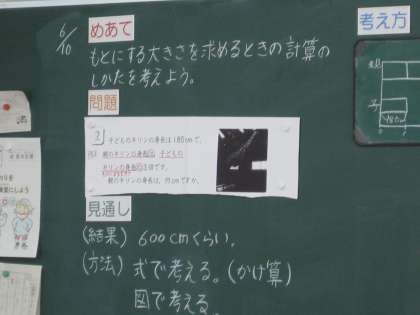 6/10
めあて
もとにする大きさを求めるときの計算の
しかたを考えよう。
問題
2 子どものキリンの身長は180cmで、
親のキリンの身長は、子どもの
キリンの身長の3倍です。
親のキリンの身長は、何cmですか。
見通し
(結果) 600cmくらい。
(方法) 式で考える。(かけ算)
図で考える。
考え方
親
子
180
0